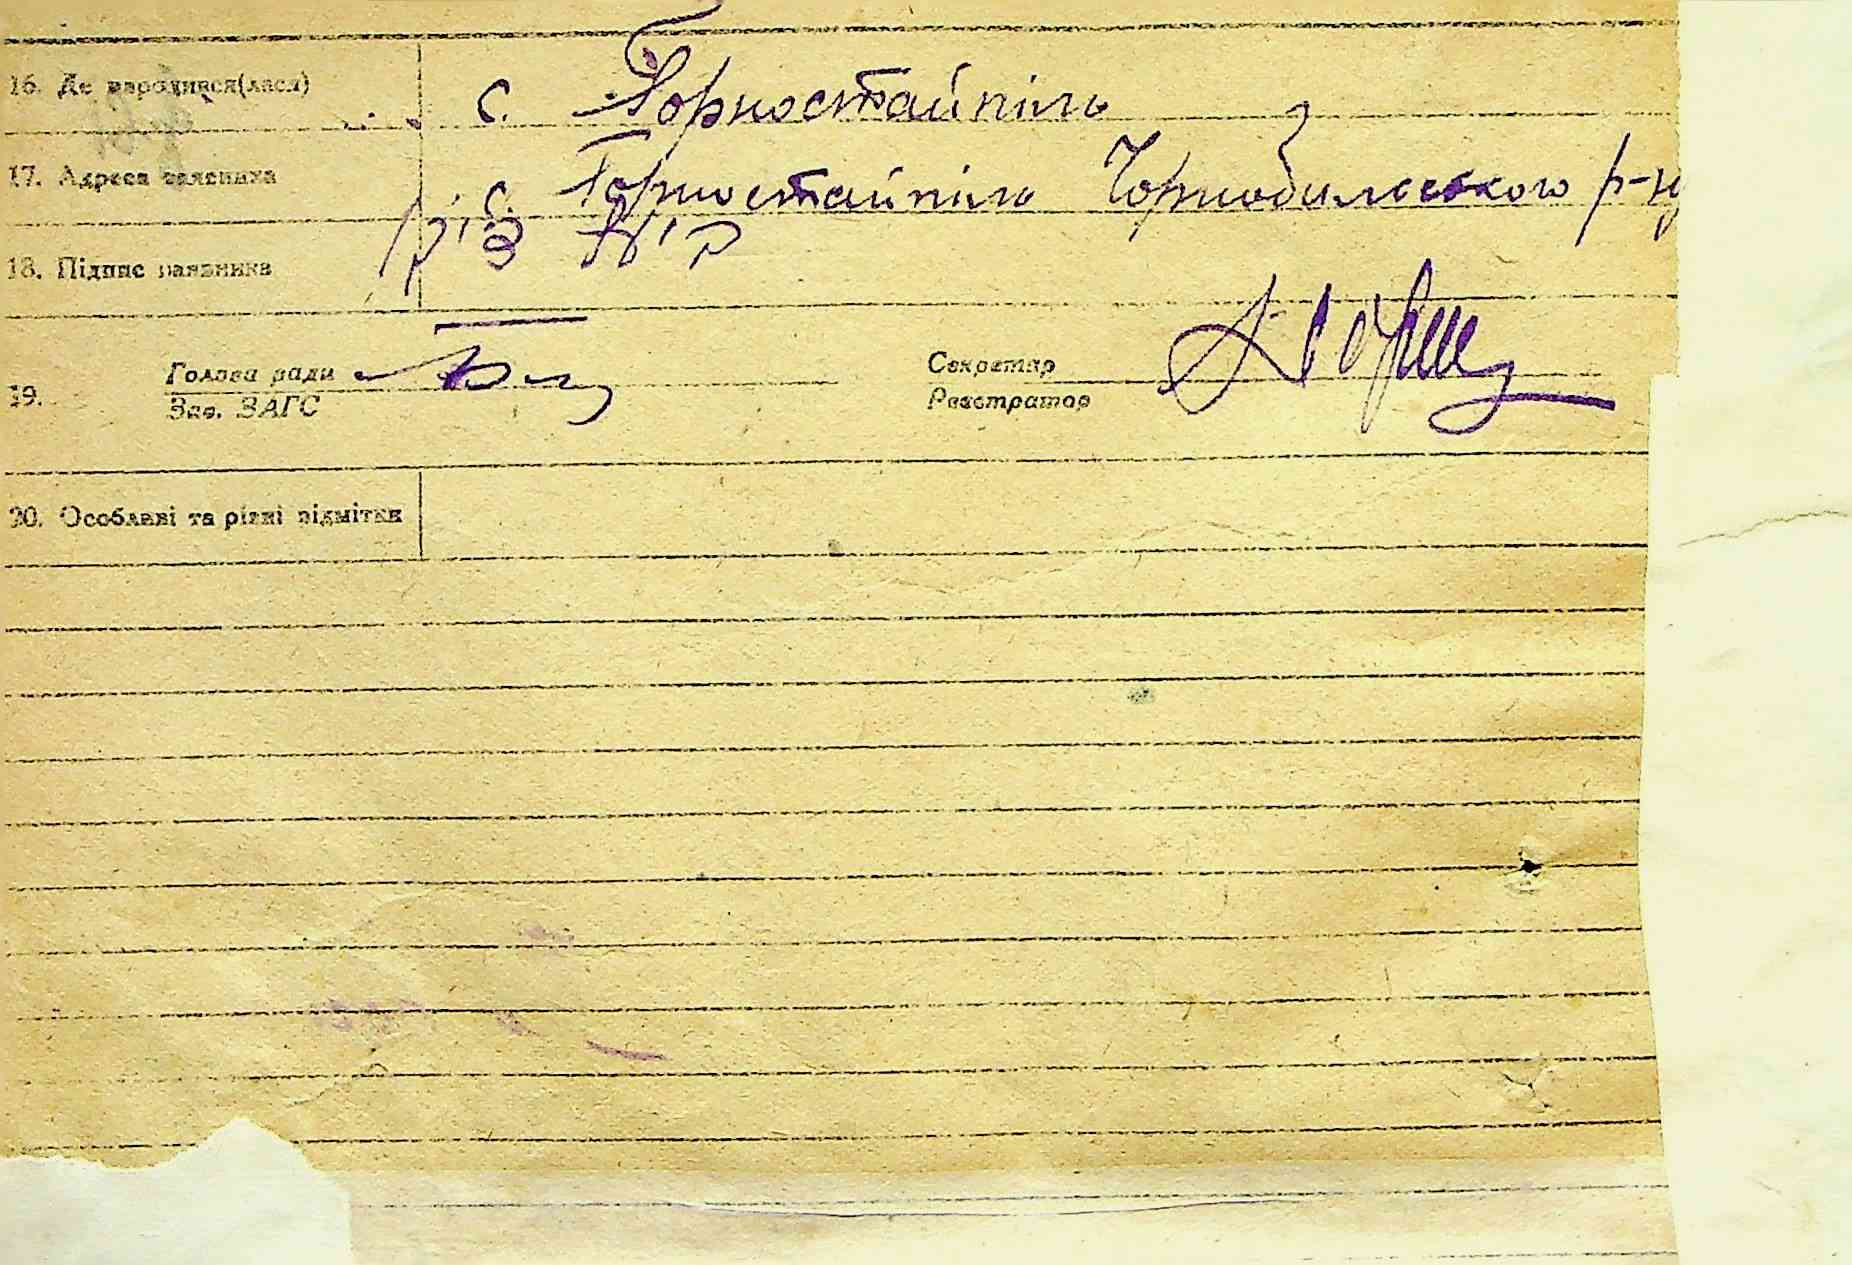 16. Де народився(лася) с. Горностайпіль
17. Адреса заявника с. Горностайпіль Чорнобильського р-ну
18. Підпис заявника
19. Голова ради Секретар
Зав. ЗАГС Реєстратор
20. Особливі та різні відмітки